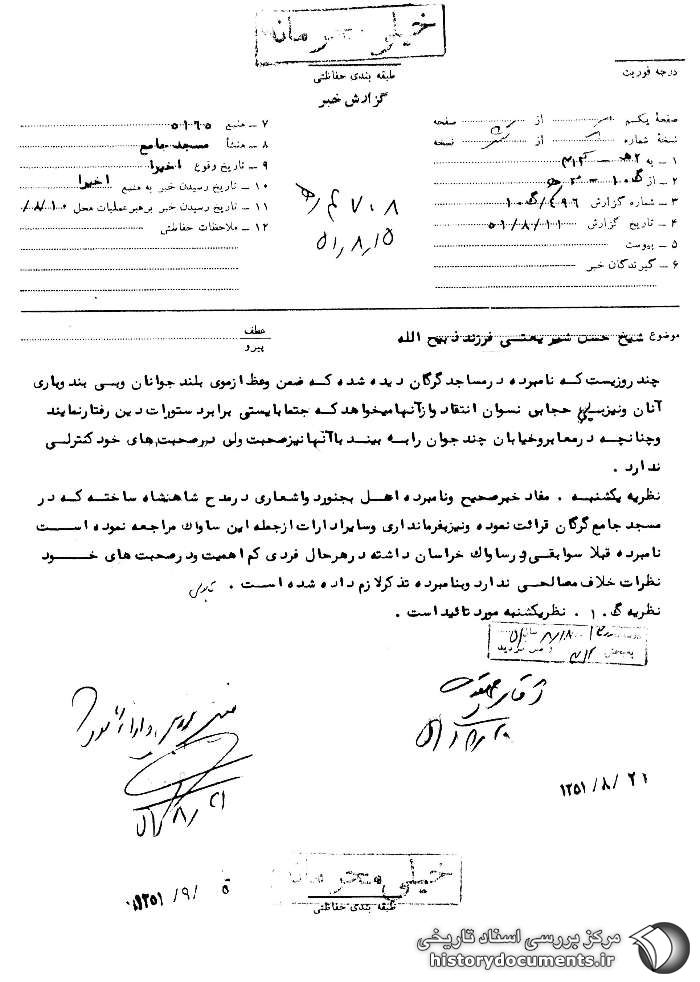 خیلی محرمانه
طبقه بندی حفاظتی
درجه فوریت
گزارش خبر
صفحهٔ یکم از صفحه
نسخهٔ شماره از نسخه
۱ - به ۲هـ - ۳۱۲
۲ - از گ۱۰ - ۳هـ
۳ - شماره گزارش ۴۹۶/گ۱۰
۴ - تاریخ گزارش ۵۱/۸/۱۱
۵ - پیوست
۶ - گیرندگان خبر
۷ - منبع ۵۱۶۵
۸ - منشأ مسجد جامع
۹ - تاریخ وقوع اخیرا
۱۰ - تاریخ رسیدن خبر به منبع اخیرا
۱۱ - تاریخ رسیدن خبر برهبر عملیات محل ۸/۱۰/
۱۲ - ملاحظات حفاظتی
۴۷۰۸/هـ
۵۱/۸/۱۵
موضوع شیخ حسن شریعتی فرزند ذبیح الله
عطف
پیرو
چند روزیست که نامبرده در مساجد گرگان دیده شده که ضمن وعظ از موی بلند جوانان وبی بند وباری
آنان ونیز بی حجابی نسوان انتقاد واز آنها میخواهد که حتما بایستی برابر دستورات دین رفتار نمایند
وچنانچه در معابر وخیابان چند جوان را به بیند با آنها نیز صحبت ولی در صحبت های خود کنترلی
ندارد .
نظریه یکشنبه . مفاد خبر صحیح ونامبرده اهل بجنورد واشعاری در مدح شاهنشاه ساخته که در
مسجد جامع گرگان قرائت نموده ونیز بفرمانداری وسایر ادارات از جمله این ساواک مراجعه نموده است
نامبرده قبلا سوابقی در ساواک خراسان داشته در هر حال فردی کم اهمیت ودر صحبت های خود
نظرات خلاف مصالحی ندارد وبنامبرده تذکر لازم داده شده است .
نظریه گ . ۱۰ . نظر یکشنبه مورد تائید است .
به بخش ۳۱۲
۱۳۵۱/۸/۲۱
۱۳۵۱/۹/ ۵
خیلی محرمانه
طبقه بندی حفاظتی
مرکز بررسی اسناد تاریخی
historydocuments.ir